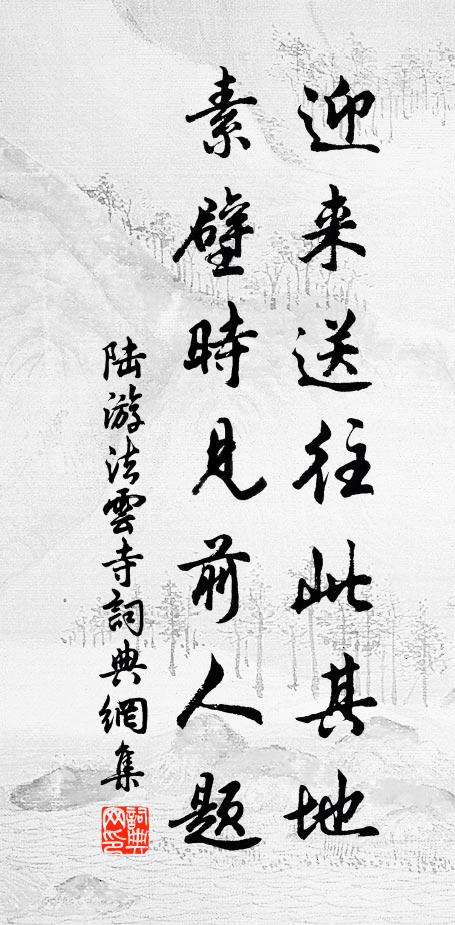 迎来送往此其地
素壁時見前人題
陆游法雲寺詞典網集
詞典网印